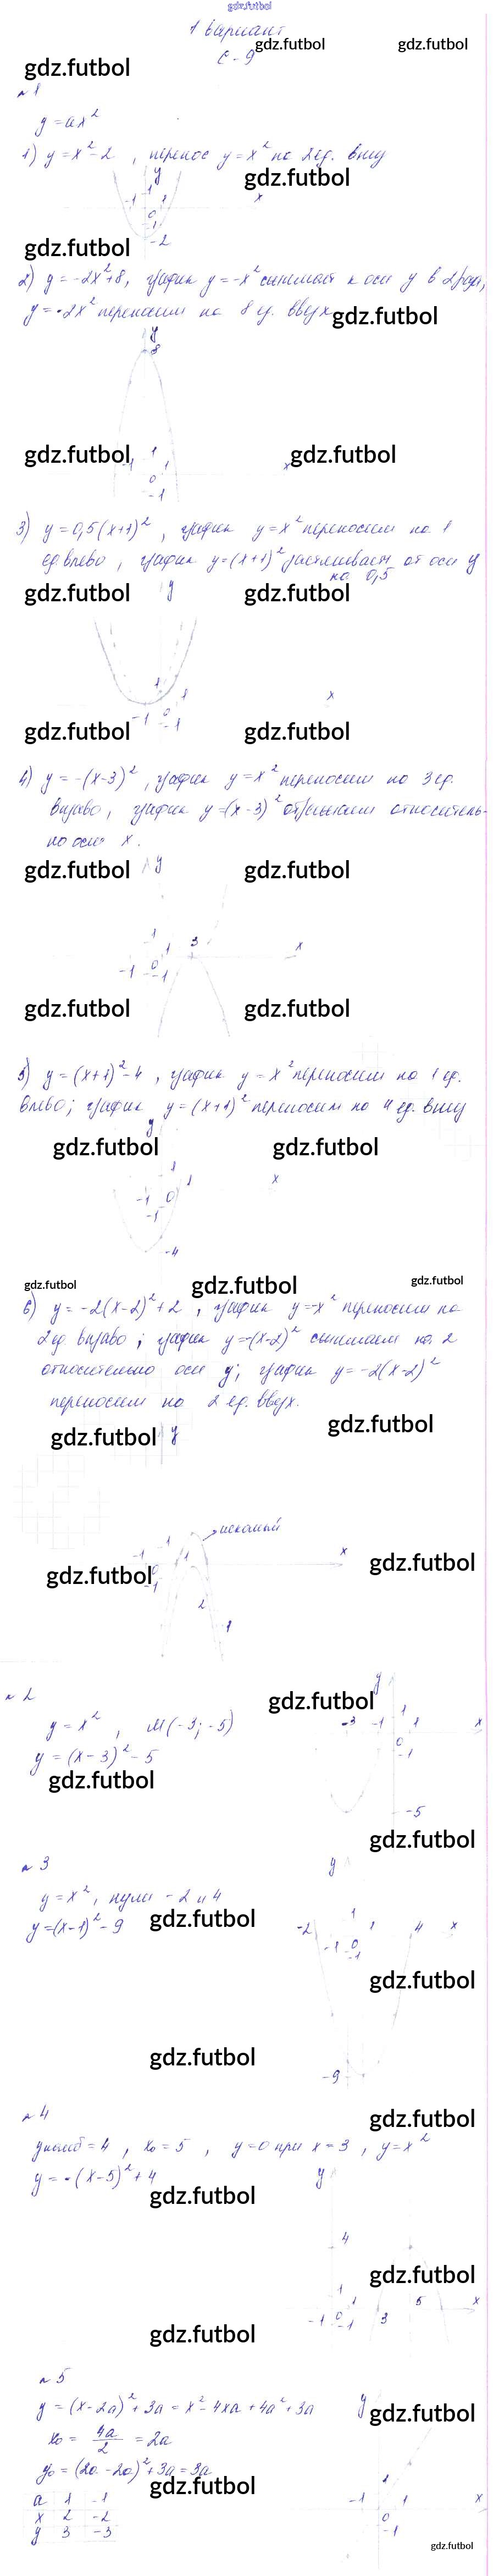 gdz.futbol
1 вариант
gdz.futbol gdz.futbol
С-9
gdz.futbol
№1
y = ax²
1) y = x² - 2, перенос y = x² на 2 ед. вниз
gdz.futbol
y
1
-1 1 x
0
-1
-2
gdz.futbol
2) y = -2x² + 8, график y = -x² сжимаем к оси y в 2 раза,
y = -2x² переносим на 8 ед. вверх
gdz.futbol
y
8
gdz.futbol gdz.futbol
1
-1 1 x
0
-1
3) y = 0,5(x+1)², график y = x² переносим на 1
ед. влево, график y = (x+1)² растягиваем от оси y
на 0,5
gdz.futbol y gdz.futbol
1 1 x
-1 0
-1
gdz.futbol gdz.futbol
4) y = -(x-3)², график y = x² переносим на 3 ед.
вправо, график y = (x-3)² отражаем относитель-
но оси x.
gdz.futbol y gdz.futbol
1 1 3 x
-1 0
-1
gdz.futbol gdz.futbol
5) y = (x+1)² - 4, график y = x² переносим на 1 ед.
влево; график y = (x+1)² переносим на 4 ед. вниз
y
gdz.futbol gdz.futbol
1 1 x
-1 0
-1
-4
gdz.futbol gdz.futbol gdz.futbol
6) y = -2(x-2)² + 2, график y = -x² переносим на
2 ед. вправо; график y = -(x-2)² сжимаем на 2
относительно оси y; график y = -2(x-2)²
переносим на 2 ед. вверх.
gdz.futbol y gdz.futbol
искомый
-1 1 1 x
gdz.futbol gdz.futbol
0
-1
2
1
№2
gdz.futbol
y = x², M(-3; -5)
y = (x-3)² - 5
gdz.futbol
y
-3 -1 1 1 x
0
-1
-5
gdz.futbol
№3
y = x², нули -2 и 4
y = (x-1)² - 9
gdz.futbol
y
-2 1 1 4 x
-1 0
-1
gdz.futbol
gdz.futbol
-9
№4
gdz.futbol
yнаиб = 4, x₀ = 5, y = 0 при x = 3, y = x²
y = -(x-5)² + 4
gdz.futbol
y
4
gdz.futbol
1 1 5 x
-1 0 3
-1
gdz.futbol
№5
y = (x-2a)² + 3a = x² - 4xa + 4a² + 3a
gdz.futbol
x₀ = 4a/2 = 2a
y₀ = (2a - 2a)² + 3a = 3a
gdz.futbol
a 1 -1
x 2 -2
y 3 -3
y
1
-1 1 x
0
-1
gdz.futbol